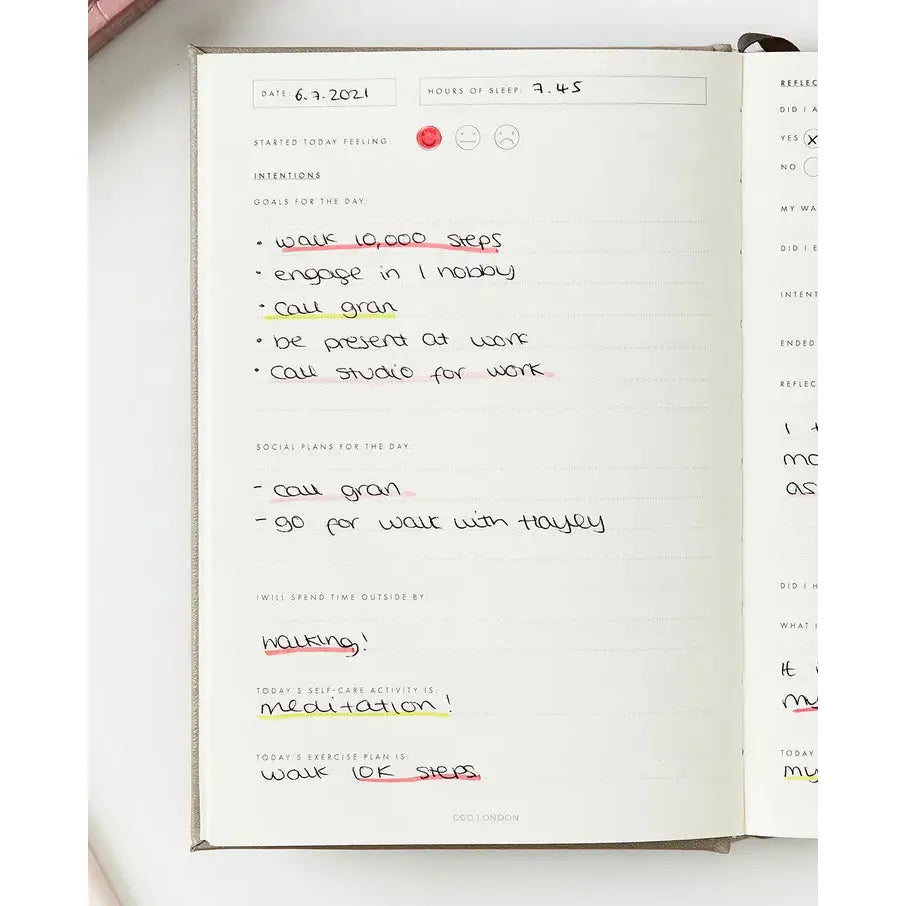 DATE: 6.7.2021
HOURS OF SLEEP: 7.45
STARTED TODAY FEELING
INTENTIONS
GOALS FOR THE DAY:
• walk 10,000 steps
• engage in 1 hobby
• call gran
• be present at work
• call studio for work
SOCIAL PLANS FOR THE DAY:
- call gran
- go for walk with Hayley
I WILL SPEND TIME OUTSIDE BY:
walking!
TODAY'S SELF-CARE ACTIVITY IS:
meditation!
TODAY'S EXERCISE PLAN IS:
walk 10K steps
CGD LONDON
REFLEC
DID I A
YES X
NO
MY WA
DID I E
INTENT
ENDED
REFLEC
I
mo
as
DID I H
WHAT I
It
my
TODAY
my